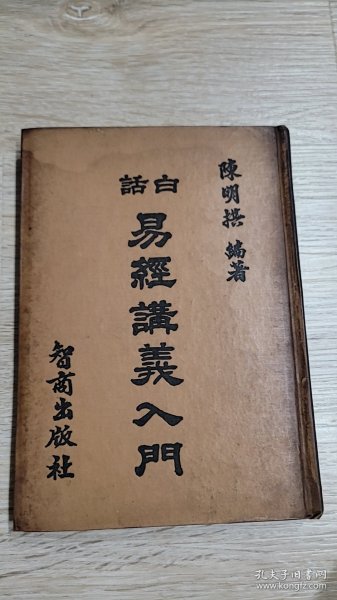 陳明撰 編著
白話
易經講義入門
智商出版社
孔夫子旧书网
www.kongfz.com